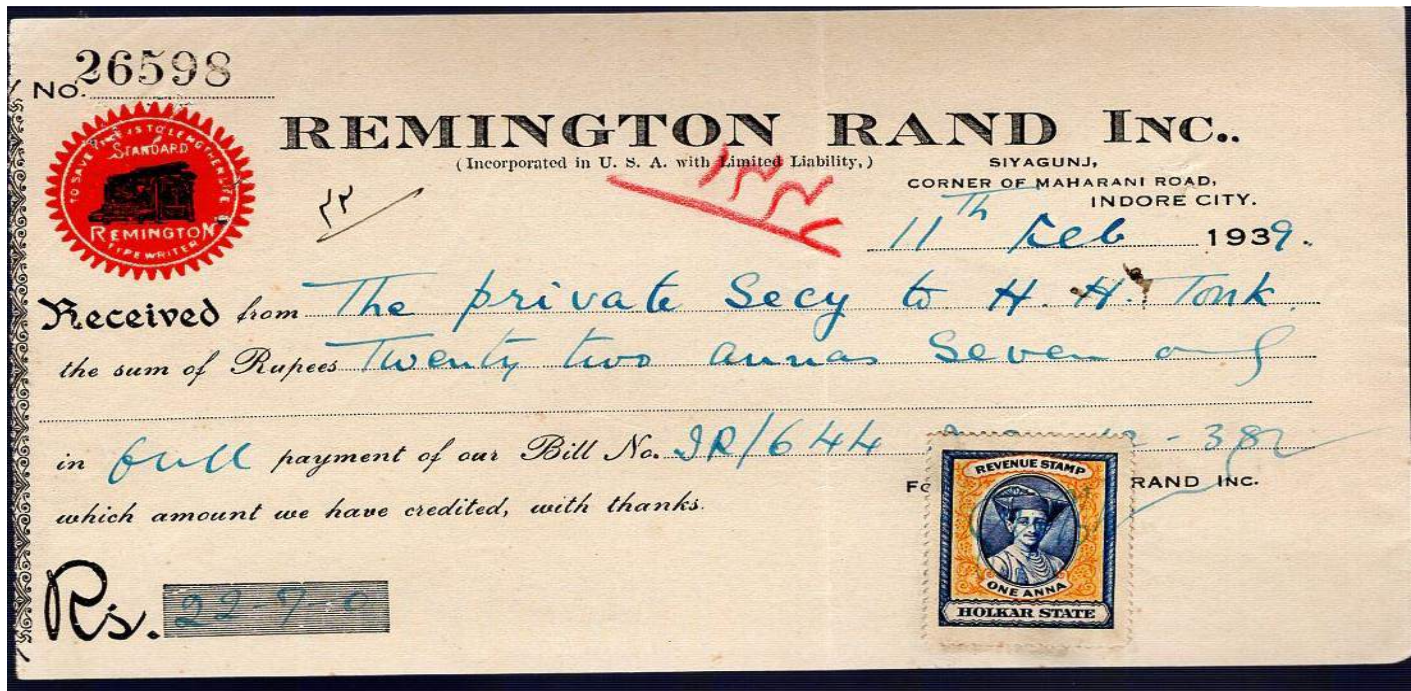 No. 26598
TO SAVE TIME IS TO LENGTHEN LIFE
STANDARD
REMINGTON
TYPEWRITER
REMINGTON RAND INC..
(Incorporated in U. S. A. with Limited Liability,)
SIYAGUNJ,
CORNER OF MAHARANI ROAD,
INDORE CITY.
۲۲
11th Feb 1939.
Received from The private Secy to H. H. Tonk.
the sum of Rupees Twenty two annas Seven only
in full payment of our Bill No. IR/644
RAND INC.
which amount we have credited, with thanks.
Rs. 22-7-0
REVENUE STAMP
ONE ANNA
HOLKAR STATE